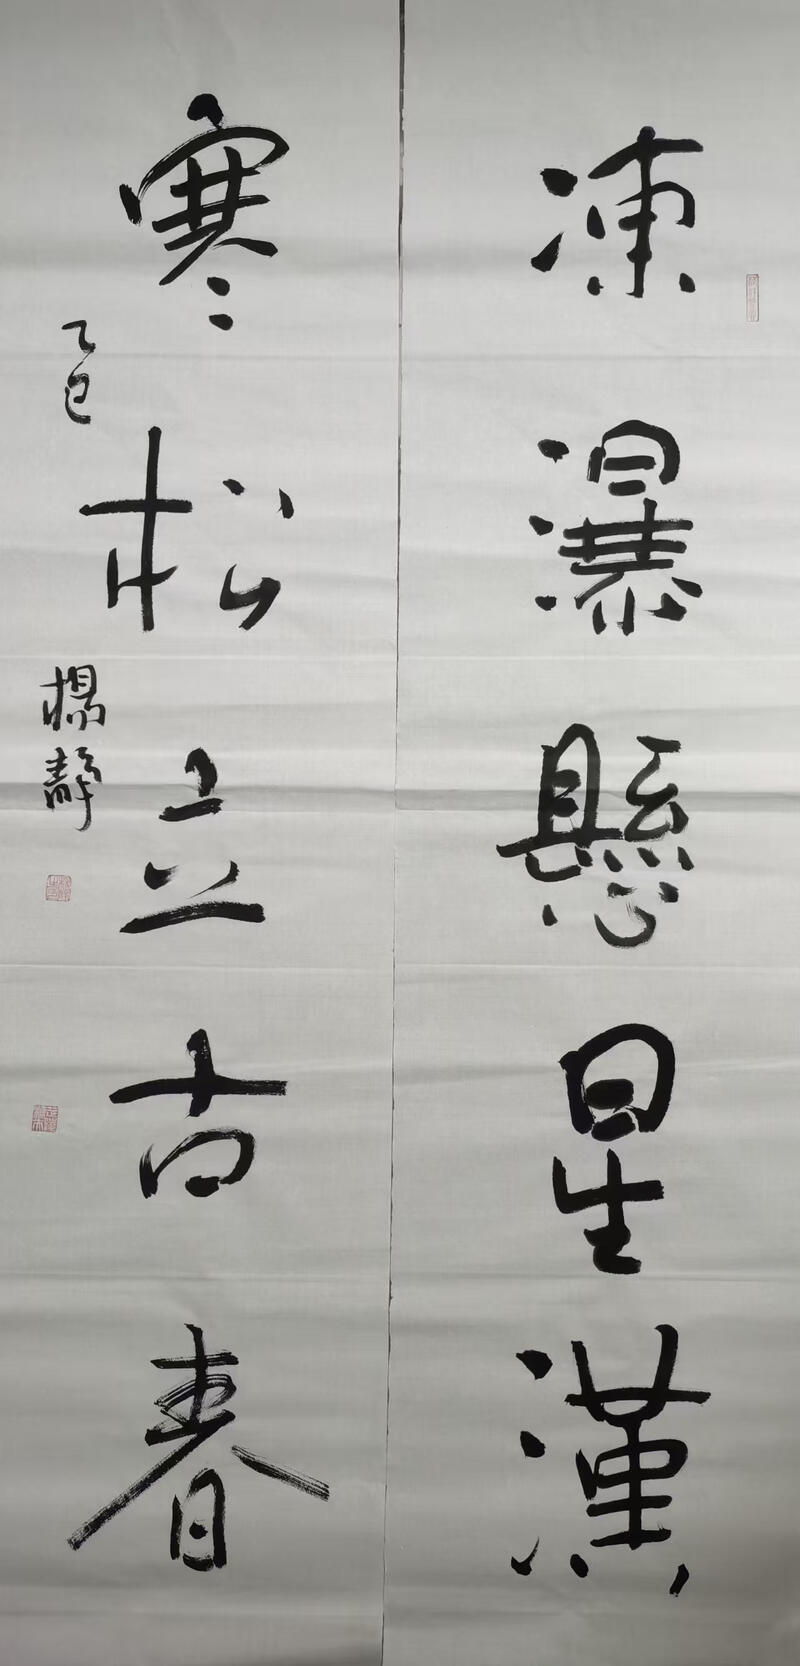 凍瀑懸星漢
寒松立古春
乙巳
楊靜